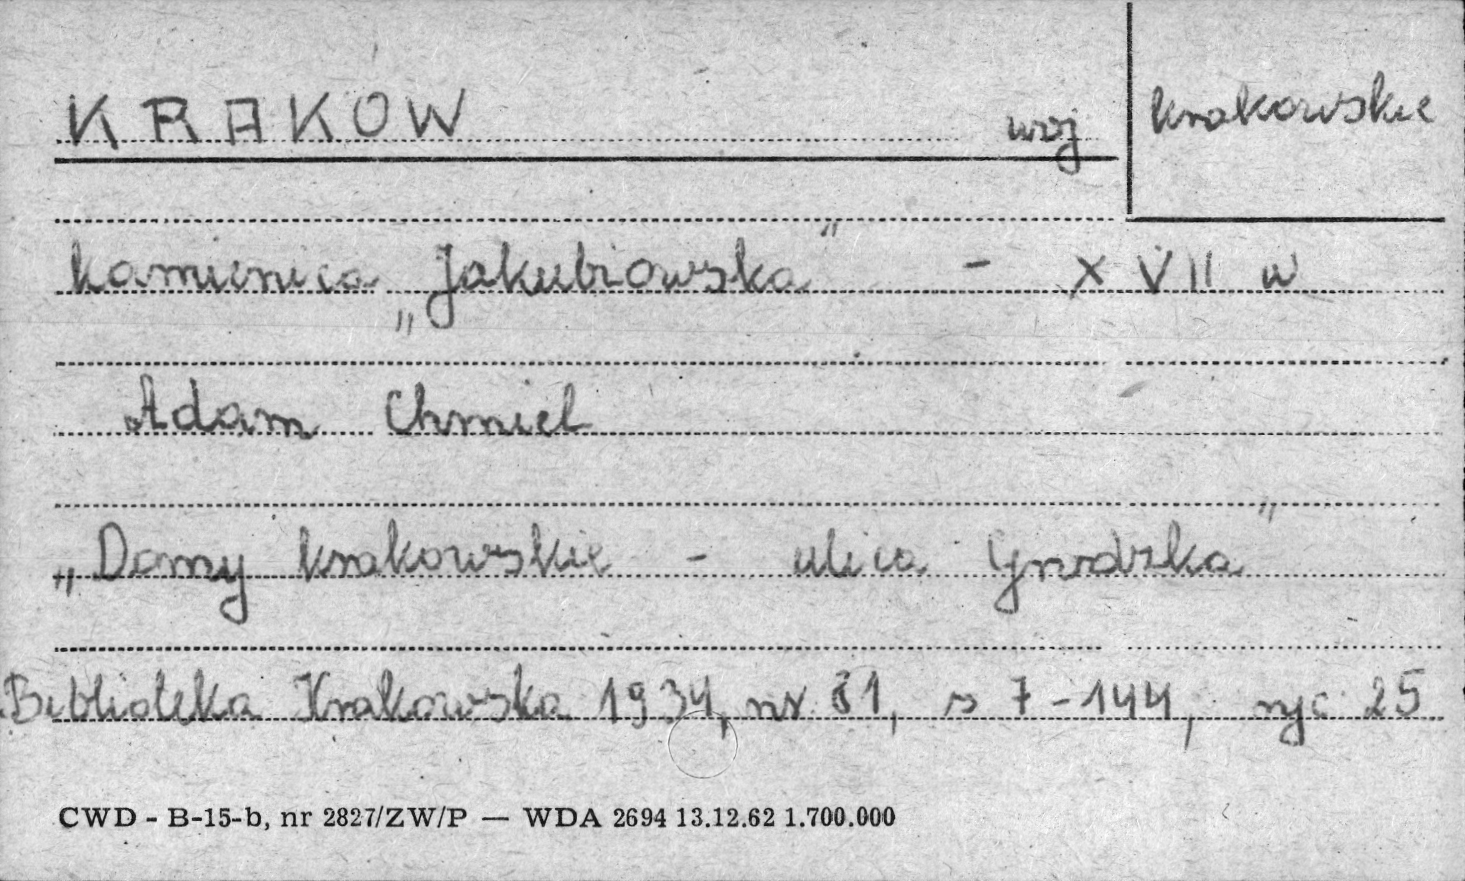 KRAKOW woj krakowskie
kamienica „Jakubiowska" - XVII w
Adam Chmiel
„Domy krakowskie - ulica Grodzka"
Biblioteka Krakowska 1934, nr 81, s 7-144, ryc 25
CWD - B-15-b, nr 2827/ZW/P — WDA 2694 13.12.62 1.700.000